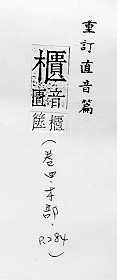 重訂直音篇
櫃
音
匱
（卷四·木部·P.284）